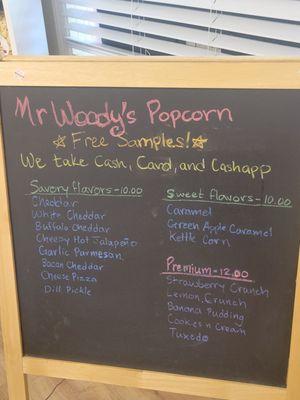 Mr Woody's Popcorn
Free Samples!
We take Cash, Card, and Cashapp
Savory flavors-10.00
Cheddar
White Cheddar
Buffalo Cheddar
Cheesy Hot Jalapeño
Garlic Parmesan
Bacon Cheddar
Cheese Pizza
Dill Pickle
Sweet flavors-10.00
Caramel
Green Apple Caramel
Kettle Corn
Premium-12.00
Strawberry Crunch
Lemon Crunch
Banana Pudding
Cookies n Cream
Tuxedo